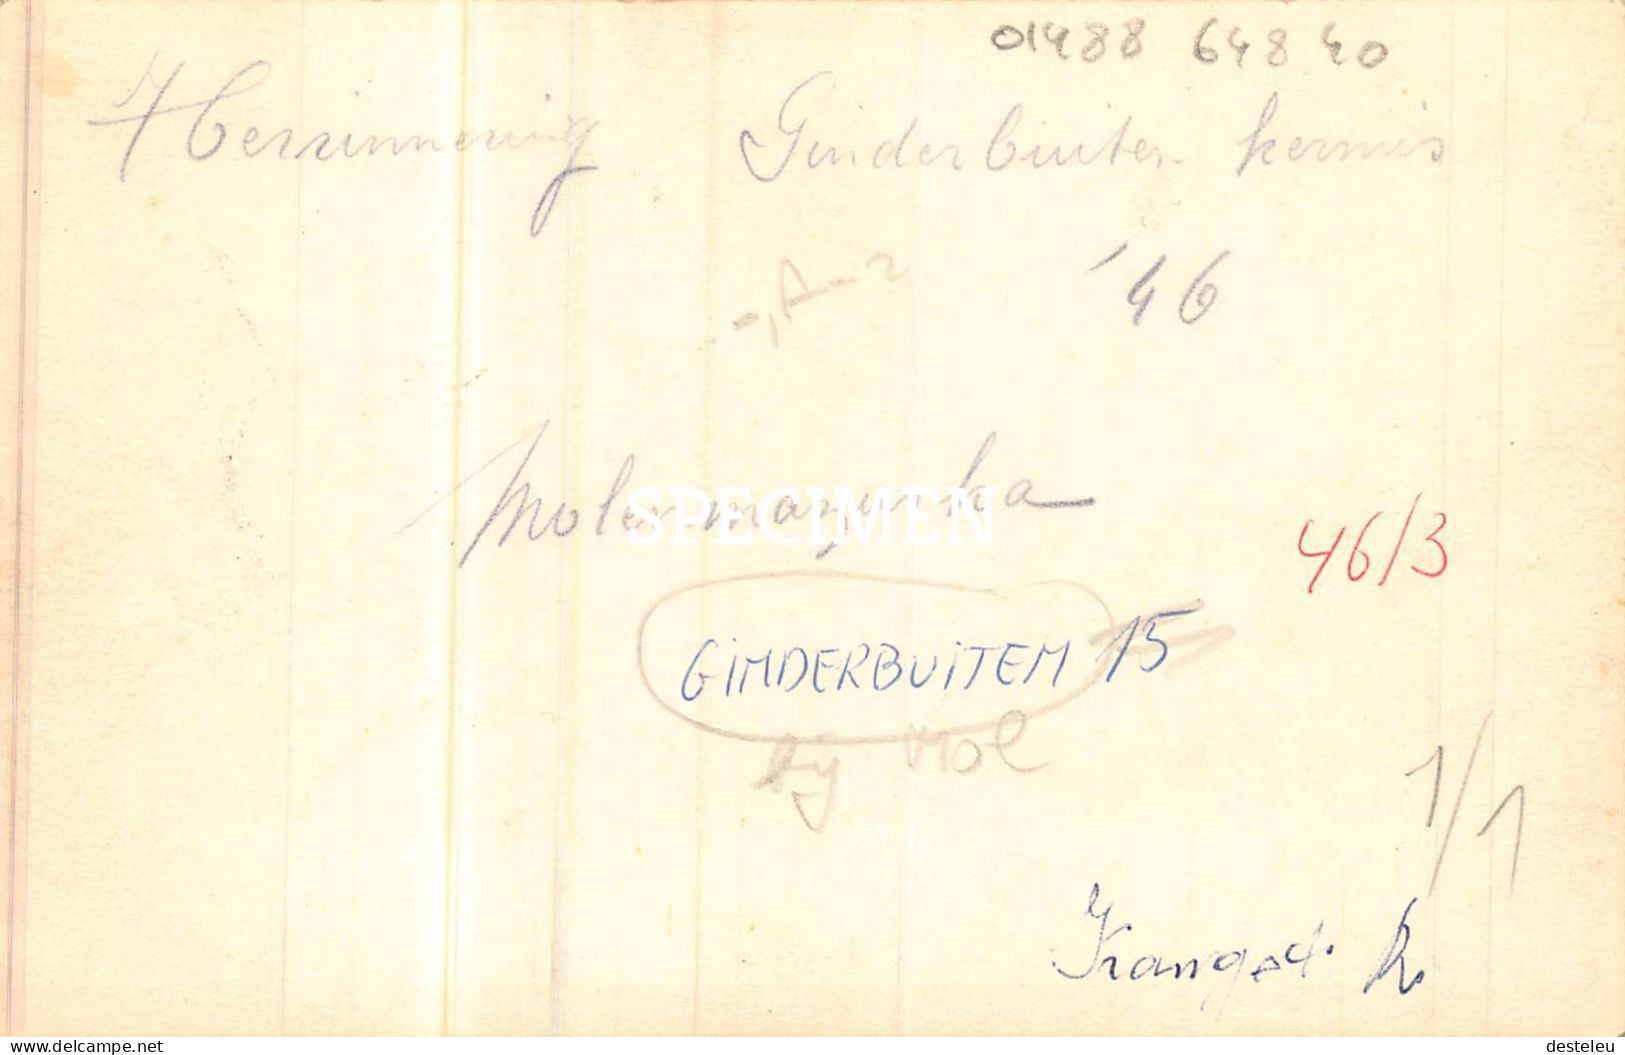 01488 648 40
Herrinnering Ginderbuiten kermis
'46
Molenmazurka
SPECIMEN
46/3
GINDERBUITEN 15
bij Mol
1/1
www.delcampe.net
desteleu